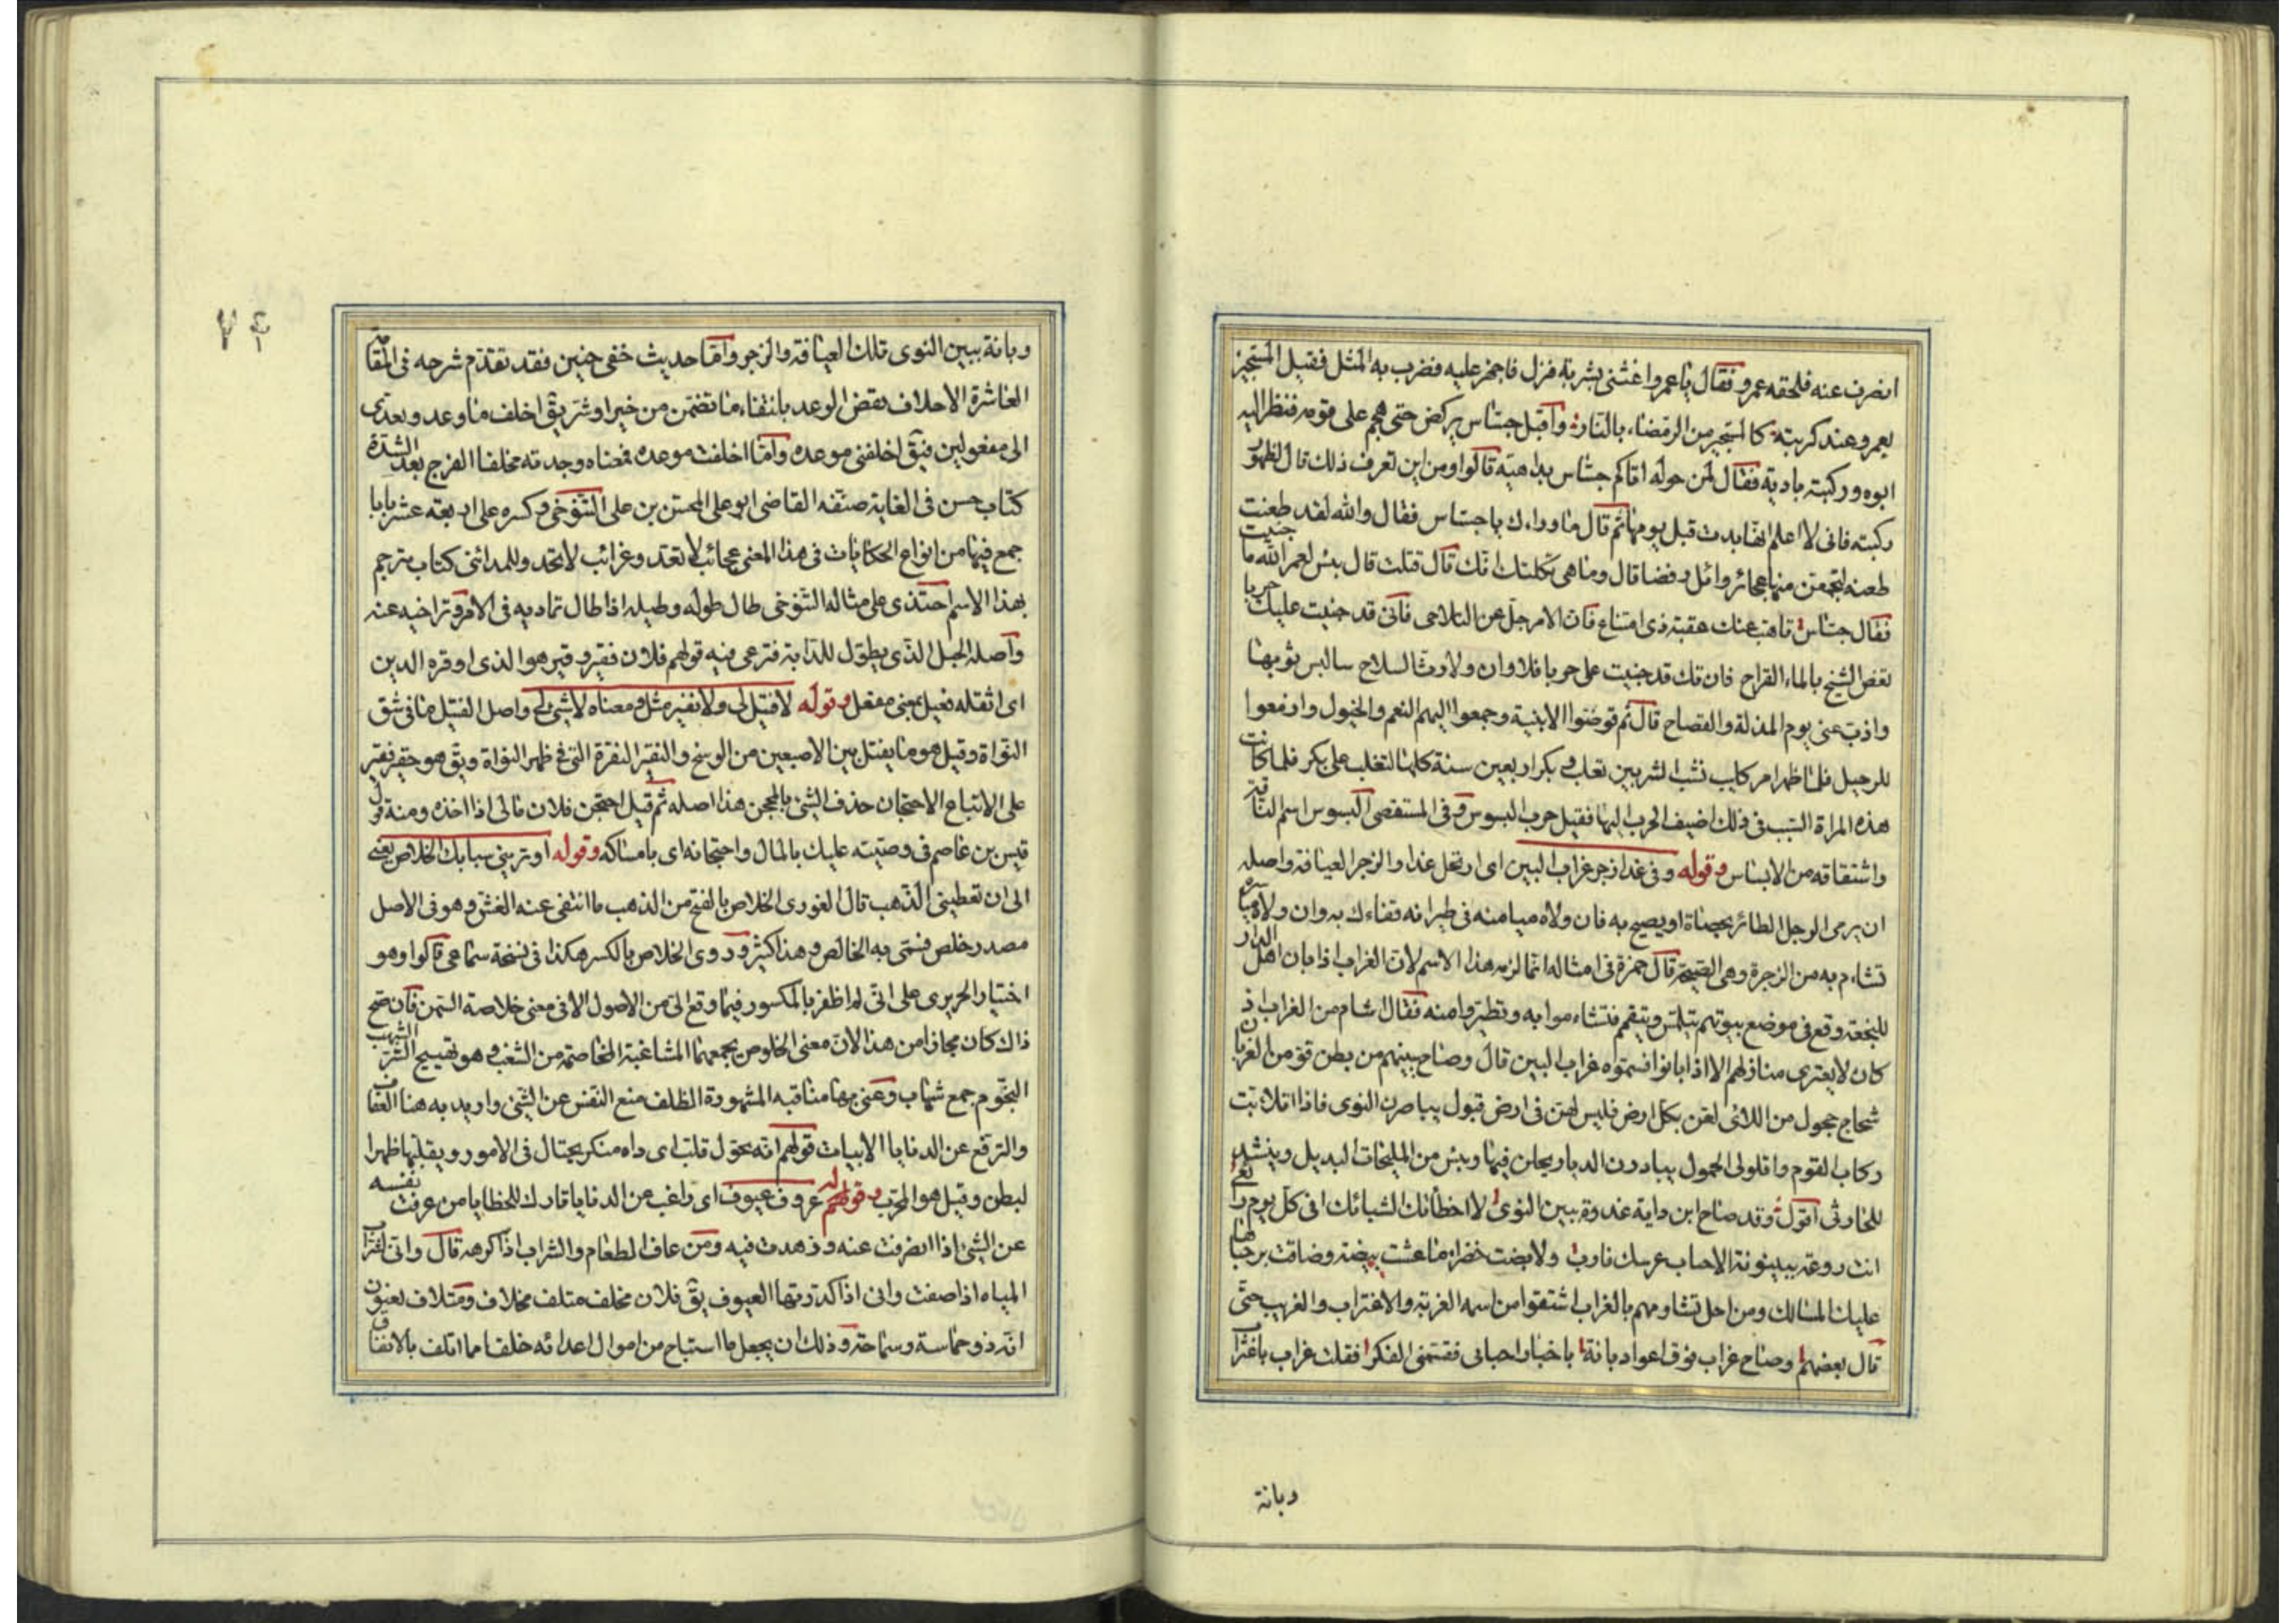 انصرف عنه فلحقه عمرو فقال يا عمرو اغثنى بشربة فنزل فاجهز عليه فضرب به المثل فقيل المستجير
بعمرو عند كربته كالمستجير من الرمضاء بالنار واقبل جساس يركض حتى هجم على قومه فنظر اليه
ابوه وركبته بادية فقال لمن حوله اتاكم جساس بداهية قالوا ومن اين تعرف ذلك قال لظهور
ركبته فانى لا اعلم انها بدت قبل يومها ثم قال ما وراءك يا جساس فقال والله لقد طعنت
طعنة لتجمعن منها عجائز وائل رقصا قال وما هى ثكلتك امك قال قتلت قال بئس لعمر الله ما جنيت
فقال جساس تاهب عنك اهبة ذى امتناع فان الامر جل عن التلاحى فانى قد جنيت عليك حربا
تغص الشيخ بالماء القراح فان تك قد جنيت على حربا فلا وان ولا رث السلاح سالبس ثوبها
واذب عنى يوم المذلة والفضاح قال ثم قوضوا الابنية وجمعوا اليهم النعم والخيول وازمعوا
للرحيل فلما ظهر امر كليب نشب الشر بين تغلب وبكر اربعين سنة كلها لتغلب على بكر فلما كانت
هذه المراة السبب فى ذلك اضيف الحرب اليها فقيل حرب البسوس وفى المستقصى البسوس اسم الناقة
واشتقاقه من الابساس وقوله وفى غد ازجر غراب البين اى ارتحل غدا والزجر العيافة واصله
ان يرمى الرجل الطائر بحصاة او يصيح به فان ولاه ميامنه فى طيرانه تفاءل به وان ولاه مياسره
تشاءم به من الزجرة وهى الصيحة قال حمزة فى امثاله انما لزمه هذا الاسم لان الغراب اذا بان اهل الدار
للنجعة وقع فى موضع بيوتهم يتلمس ويتقمم فتشاءموا به وتطيروا منه فقال اشام من الغراب اذ
كان لا يعترى منازلهم الا اذا بانوا فسموه غراب البين قال وصاح ببينهم من بطن قو من الغربان
شحاج حجول من اللائى لعن بكل ارض فليس لهن فى ارض قبول يباصرن النوى فاذا اتلابت
ركاب القوم واقلولى الحمول يبادرن الديار يجلن فيها وبئس من المليحات البديل وينشد
للحارثى اقول وقد صاح ابن داية غدوة ببين النوى لا اخطاتك الشبائك افى كل يوم رائعى
انت روعة ببينونة الاحباب عرسك فارك ولا بضت خضراء ما عشت بيضة وضاقت برحبها
عليك المسالك ومن اجل تشاومهم بالغراب اشتقوا من اسمه الغربة والاغتراب والغريب حتى
قال بعضهم وصاح غراب فوق اعواد بانة باخبار احبابى فقسمنى الفكر فقلت غراب باغتراب
وبانة
وبانة ببين النوى تلك العيافة والزجر واما حديث خفى حنين فقد تقدم شرحه فى المقامة
العاشرة الاخلاف نقض الوعد بانتفاء ما تضمن من خير او شر يق اخلف ما وعد ويعدى
الى مفعولين فيق اخلفنى موعده واما اخلفت موعده فمعناه وجدته مخلفا الفرج بعد الشدة
كتاب حسن فى الغاية صنفه القاضى ابو على المحسن بن على التنوخى وكسره على اربعة عشر بابا
جمع فيها من انواع الحكايات فى هذا المعنى عجائب لا تعد وغرائب لا تحد وللمدائنى كتاب مترجم
بهذا الاسم احتذى على مثاله التنوخى طال طوله وطيله اذا طال تماديه فى الامر وتراخيه عنه
واصله الحبل الذى يطول للدابة فترعى فيه قولهم فلان فقير وقير هو الذى اوقره الدين
اى اثقله فعيل بمعنى مفعل وقوله لا فتيل لى ولا نقير مثل ومعناه لا شئ لى واصل الفتيل ما فى شق
النواة وقيل هو ما يفتل بين الاصبعين من الوسخ والنقير النقرة التى فى ظهر النواة ويق هو حقير نقير
على الاتباع الاحتجان جذب الشئ بالمحجن هذا اصله ثم قيل احتجن فلان مالى اذا اخذه ومنه قول
قيس بن عاصم فى وصيته عليك بالمال واحتجانه اى بامساكه وقوله او ترينى سبابك الخلاص يعنى
الى ان تعطينى الذهب قال الغورى الخلاص بالفتح من الذهب ما انتفى عنه الغش وهو فى الاصل
مصدر خلص فسمى به الخالص وهذا كثير وروى الخلاص بالكسر هكذا فى نسخة سماعى قالوا وهو
اختيار الحريرى على انى لم اظفر بالمكسور فيما وقع الى من الاصول الا فى معنى خلاصة السمن فان صح
ذاك كان مجازا من هذا لان معنى الخلوص يجمعهما المشاغبة المخاصمة من الشغب وهو تهييج الشر الشهب
النجوم جمع شهاب وعنى بها مناقبه المشهورة الظلف منع النفس عن الشئ واريد به هنا العفاف
والترفع عن الدنايا الابيات قولهم انه يحول قلب اى داه منكر يحتال فى الامور ويقلبها ظهرا
لبطن وقيل هو المجرب وقولهم عروف عيوف اى راغب عن الدنايا تارك للخطايا من عرفت نفسه
عن الشئ اذا انصرفت عنه وزهدت فيه ومن عاف الطعام والشراب اذا كرهه قال وانى لشراب
المياه اذا صفت وانى اذا كدرتها العيوف يق فلان مخلف متلف مخلاف ومتلاف يعنون
انه ذو حماسة وسماحة وذلك ان يجعل ما استباح من اموال اعدائه خلفا مما اتلف بالانفاق